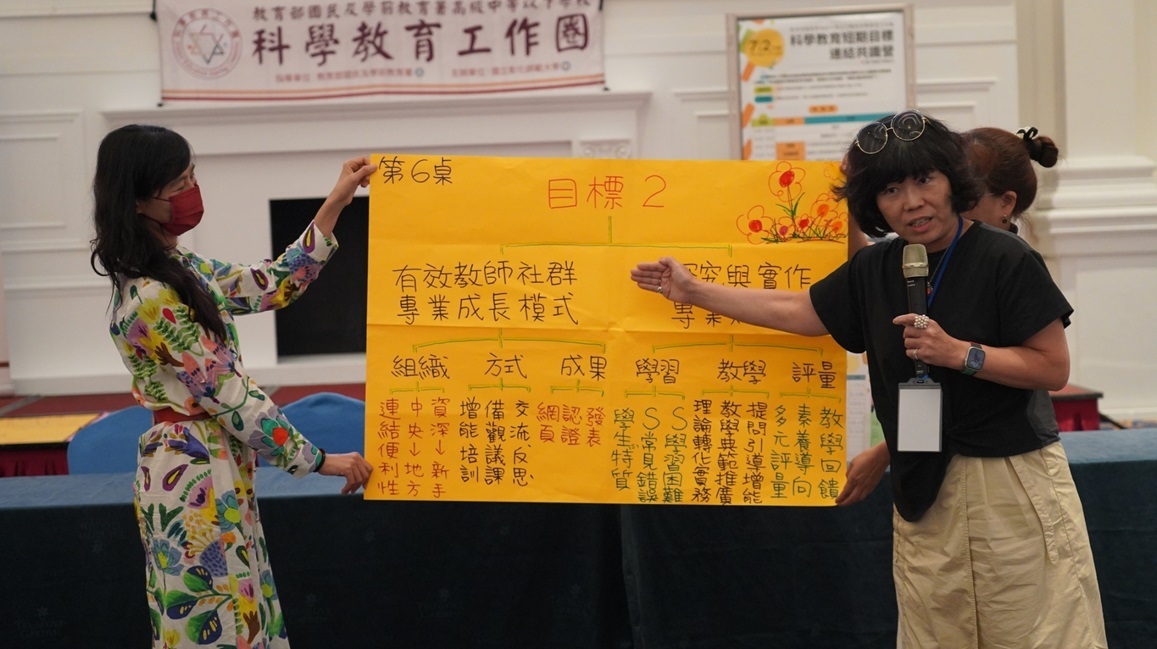 教育部國民及學前教育署高級中等以下學校
科學教育工作圈
科學教育短期目標
連結共識營
第6桌
目標2
有效教師社群
專業成長模式
究與實作
專業
組織
方式
成果
學習
教學
評量
資深→新手
中央→地方
連結便利性
交流反思
備觀議課
增能培訓
發表
認證
網頁
S學習困難
S常見錯誤
學生特質
提問引導增能
教學典範推廣
理論轉化實務
教學回饋
素養導向
多元評量